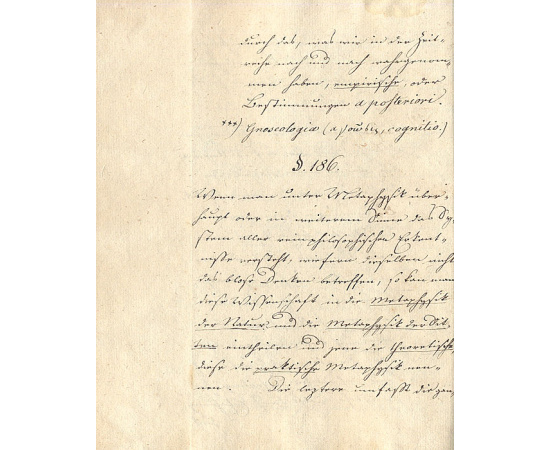 durch das, was wir in der Zeit-
reihe nach und nach wahrgenom-
men haben, empirische, oder
Bestimmungen a posteriori.
***) Gnoseologia (a γνωσις, cognitio.)
§. 186.
Wenn man unter Metaphysik über-
haupt oder in weiterem Sinne das Sy-
stem aller rein philosophischen Erkent-
nisse versteht, wiefern dieselben nicht
das blose Denken betreffen, so kan man
diese Wissenschaft in die Metaphysik
der Natur und die Metaphysik der Sit-
ten eintheilen und jene die theoretische,
diese die praktische Metaphysik nen-
nen. Die leztere umfaßt die gan-